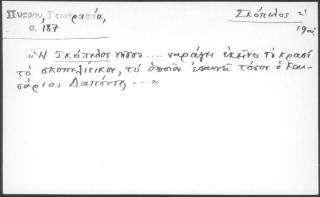 Πύρρου, Γεωγραφία,
σ. 187
Σκόπελος
"Η Σκόπελος νῆσο .... παράγει ἐκεῖνο τό κρασί
τό σκοπελίτικον, τό ὁποῖον ἐπαινεῖ τόσον ὁ Και-
σάριος Δαπόντε ..."